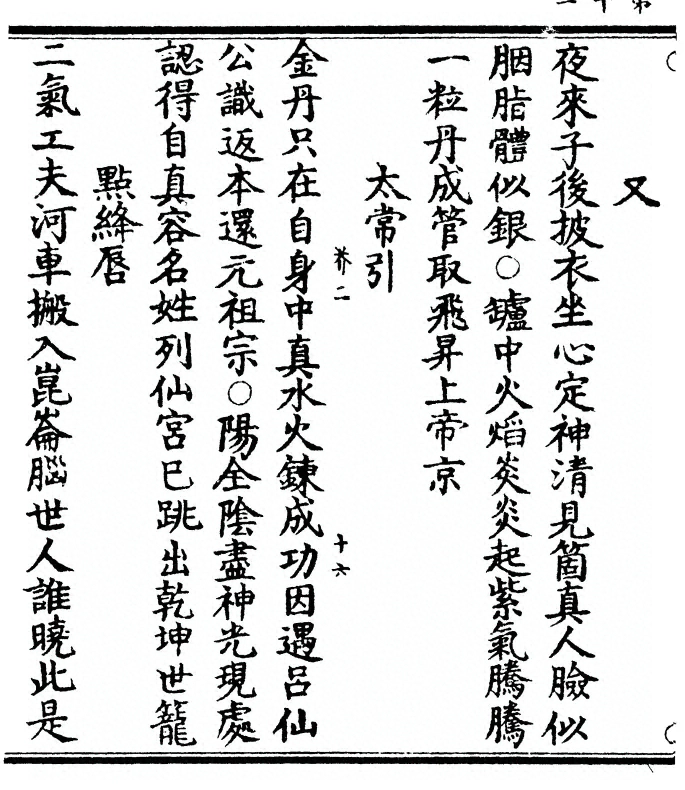 又
夜來子後披衣坐心定神清見箇真人臉似
胭脂體似銀○鑪中火焰炎炎起紫氣騰騰
一粒丹成管取飛昇上帝京
太常引
养二 十六
金丹只在自身中真水火鍊成功因遇呂仙
公識返本還元祖宗○陽全陰盡神光現處
認得自真容名姓列仙宮巳跳出乾坤世籠
點絳唇
二氣工夫河車搬入崑崙腦世人誰曉此是